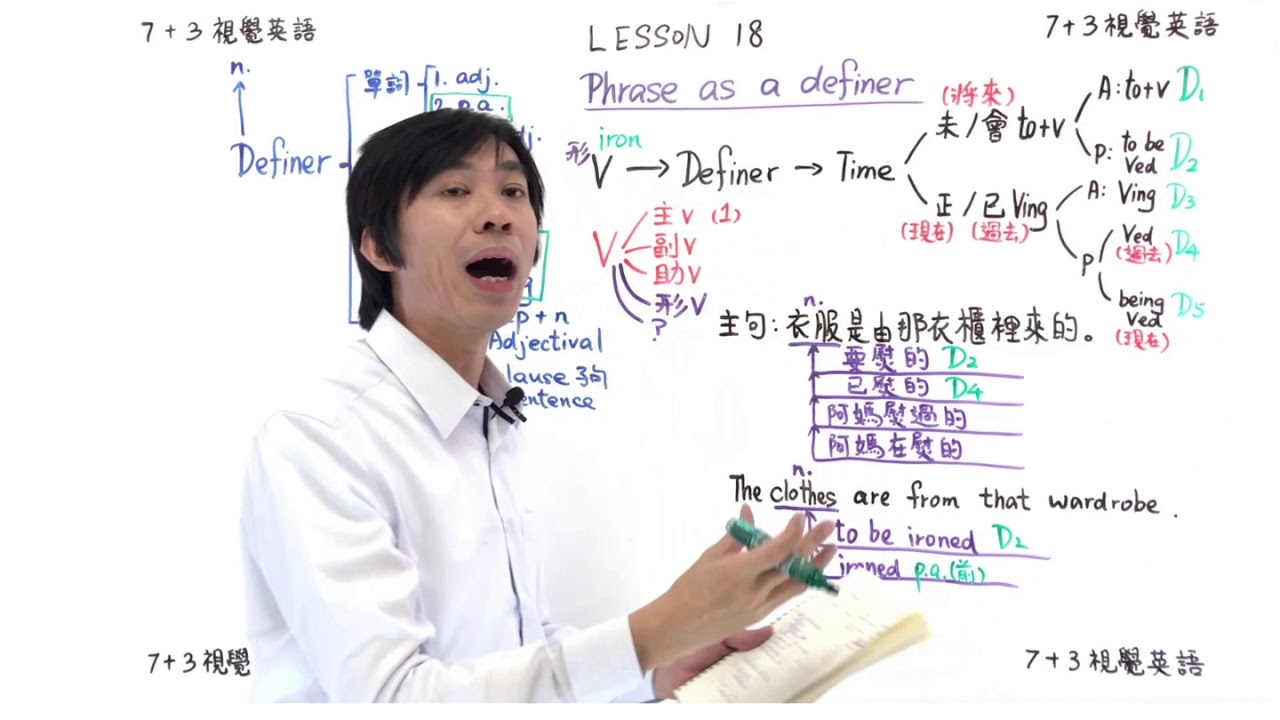 7+3 視覺英語
LESSON 18
7+3 視覺英語
Phrase as a definer
n.
Definer
單詞
1. adj.
2. p.a.
p + n
Adjectival
lause 子句
entence
形 V iron → Definer → Time
(將來)
未/會 to+V
A: to+V D1
P: to be Ved D2
正/已 Ving
(現在) (過去)
A: Ving D3
P
Ved D4
(過去)
being Ved D5
(現在)
V
主V (1)
副V
助V
形V
?
n.
主句: 衣服是由那衣櫃裡來的。
要熨的 D2
已熨的 D4
阿媽熨過的
阿媽在熨的
n.
The clothes are from that wardrobe.
to be ironed D2
ironed p.a.(前)
7+3 視覺
7+3 視覺英語